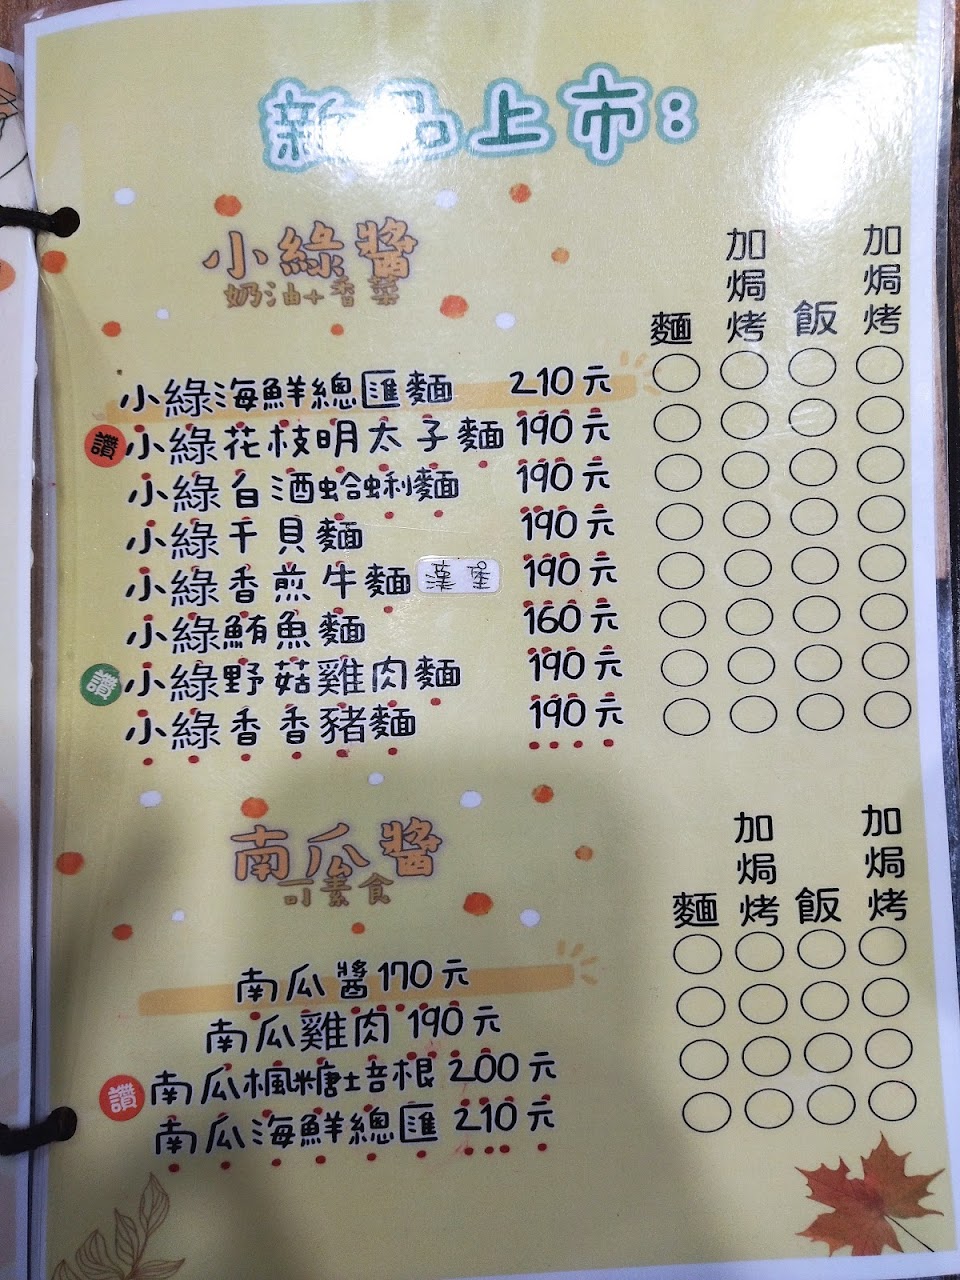 新品上市:
小綠醬
奶油+香菜
麵 加焗烤 飯 加焗烤
小綠海鮮總匯麵 210元
讚 小綠花枝明太子麵 190元
小綠白酒蛤蜊麵 190元
小綠干貝麵 190元
小綠香煎牛麵 漢堡 190元
小綠鮪魚麵 160元
讚 小綠野菇雞肉麵 190元
小綠香香豬麵 190元
南瓜醬
可素食
麵 加焗烤 飯 加焗烤
南瓜醬 170元
南瓜雞肉 190元
讚 南瓜楓糖培根 200元
南瓜海鮮總匯 210元